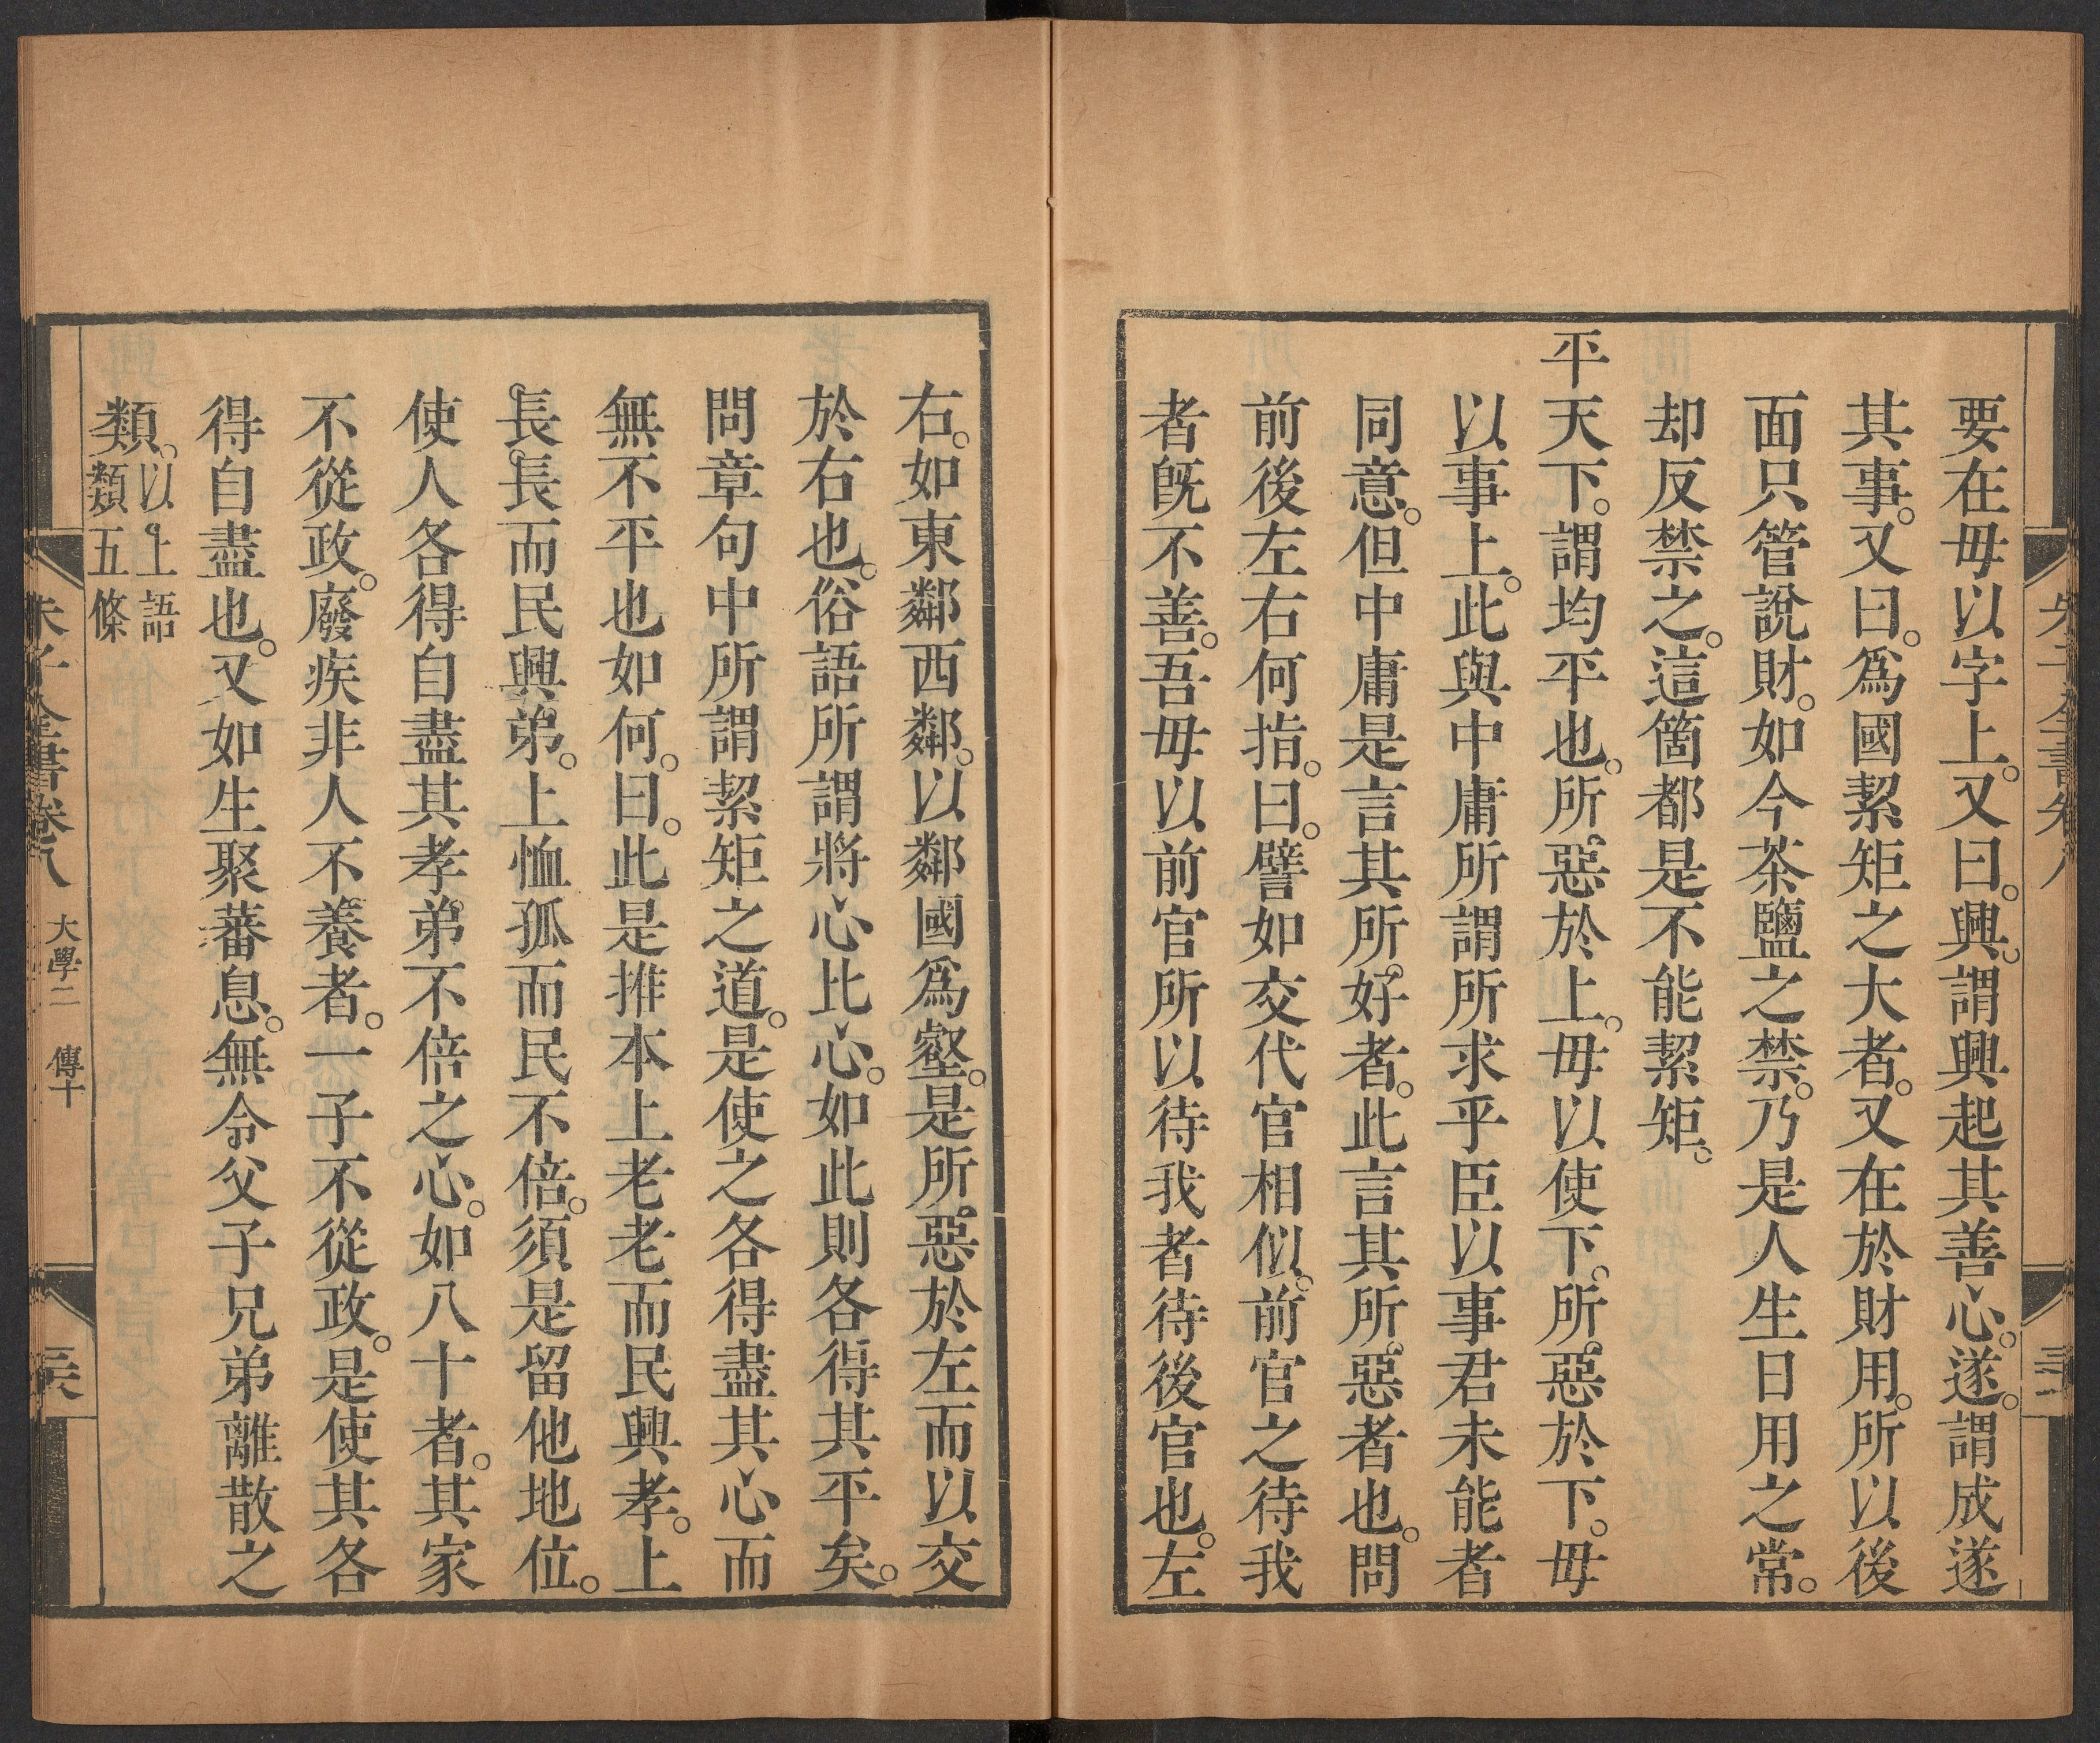 要在毋以字上。又曰。興。謂興起其善心。遂。謂成遂
其事。又曰。爲國絜矩之大者。又在於財用。所以後
面只管說財。如今茶鹽之禁。乃是人生日用之常。
却反禁之。這箇都是不能絜矩。
平天下。謂均平也。所惡於上。毋以使下。所惡於下。毋
以事上。此與中庸所謂所求乎臣以事君未能者
同意。但中庸是言其所好者。此言其所惡者也。問
前後左右何指。曰。譬如交代官相似。前官之待我
者旣不善。吾毋以前官所以待我者待後官也。左
右。如東鄰西鄰。以鄰國爲壑。是所惡於左而以交
於右也。俗語所謂將心比心。如此則各得其平矣。
問章句中所謂絜矩之道。是使之各得盡其心而
無不平也如何。曰。此是推本上老老而民興孝。上
長長而民興弟。上恤孤而民不倍。須是留他地位。
使人各得自盡其孝弟不倍之心。如八十者。其家
不從政。廢疾非人不養者。一子不從政。是使其各
得自盡也。又如生聚蕃息。無令父子兄弟離散之
類。以上語
類五條
朱子全書卷八 大學二 傳十